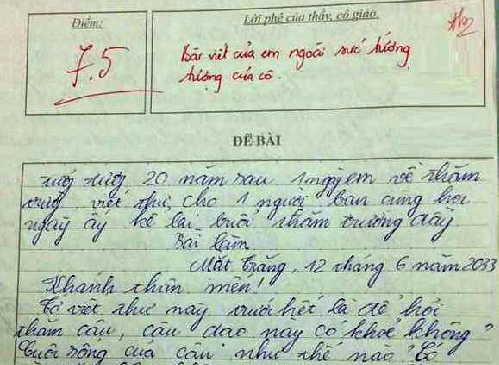 Điểm:
Lời phê của thầy, cô giáo.
7.5
Bài viết của em ngoài sức tưởng
tượng của cô.
ĐỀ BÀI
tưởng tượng 20 năm sau 1 ngày em về thăm
viết thư cho 1 người bạn cùng học
ngày ấy kể lại buổi thăm trường đấy
Bài làm
Mặt trăng, 12 tháng 6 năm 2033
Khanh thân mến!
Tớ viết thư này trước hết là để hỏi
thăm cậu, cậu dạo này có khỏe không
cuộc sống của cậu như thế nào có